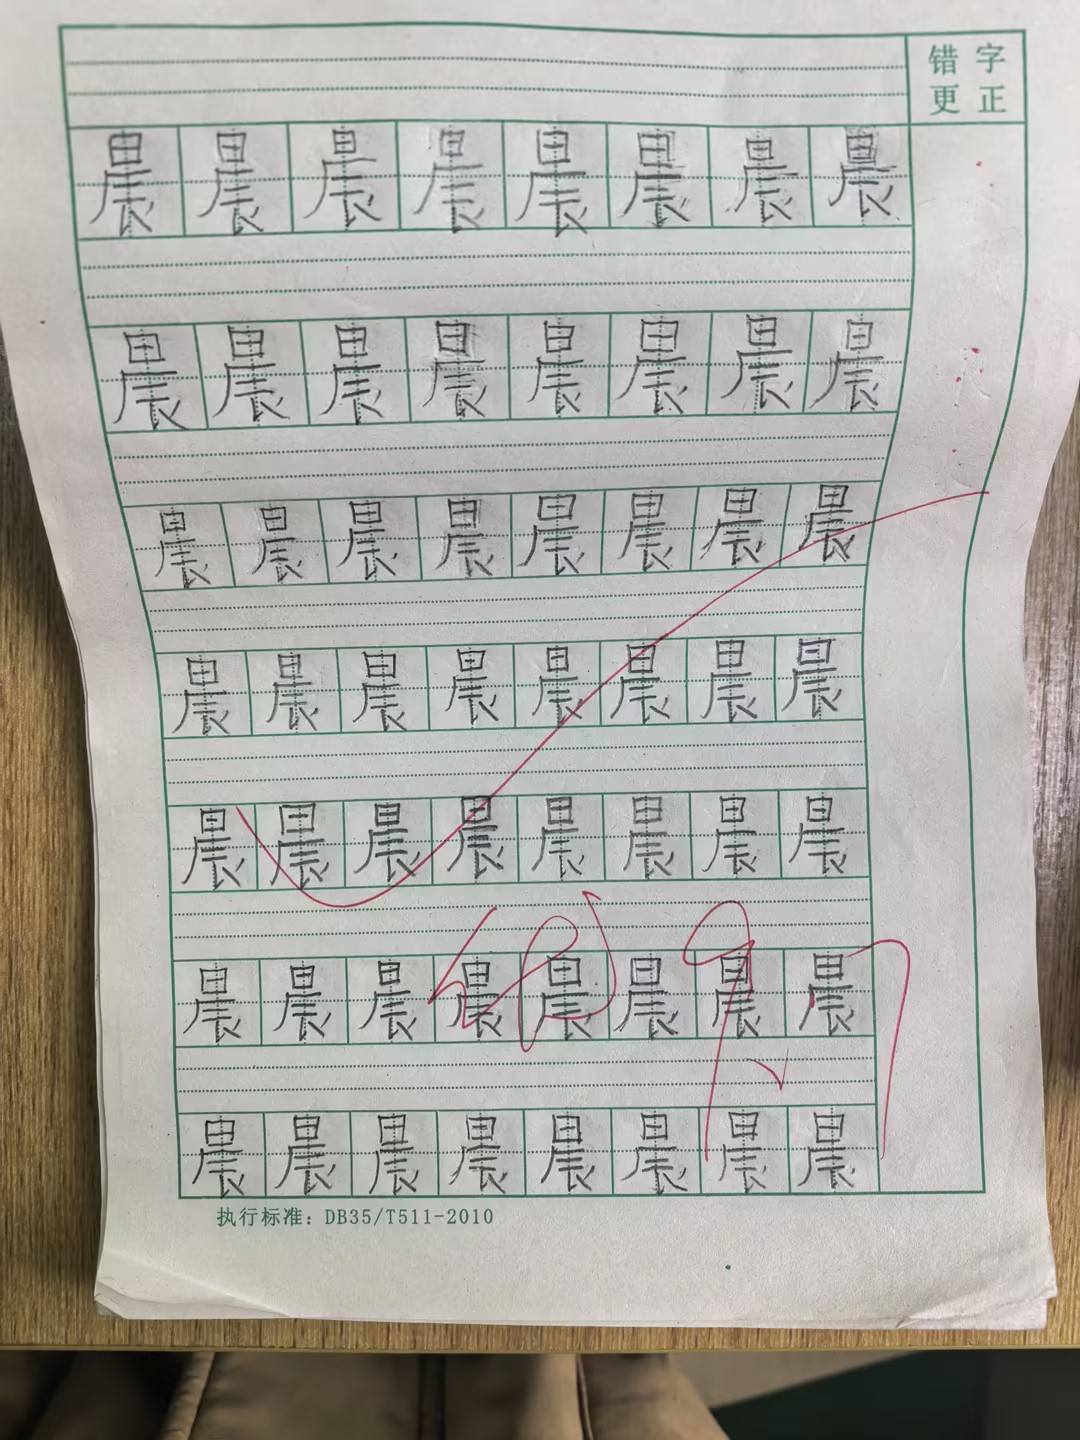 错字
更正
晨晨晨晨晨晨晨晨
晨晨晨晨晨晨晨晨
晨晨晨晨晨晨晨晨
晨晨晨晨晨晨晨晨
晨晨晨晨晨晨晨晨
晨晨晨晨晨晨晨晨
晨晨晨晨晨晨晨晨
执行标准：DB35/T511-2010